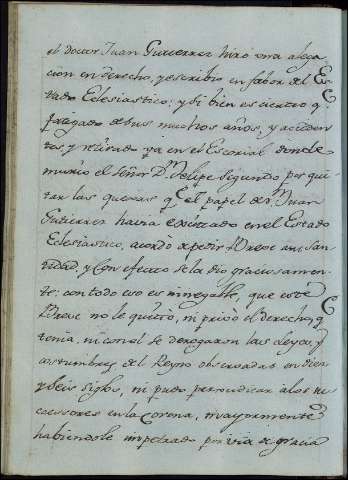 el doctor Juan Gutierrez hizo una alega
cion en derecho, y escribio en fabor del Es
tado Eclesiastico; y si bien es cierto q
fatigado de sus muchos años, y acciden
tes, y retirado ya en el Escorial donde
murio el Señor Dn Felipe Segundo por qui
tar las quexas q el papel de Dn Juan
Gutierrez havia excitado en el Estado
Eclesiastico, acordo de pedir Breve a su San
tidad, y con efecto se la dio graciosamen
te; con todo eso es innegable, que este
Breve no le quitò, ni privò el derecho q
tenia, ni con el se derogaron las Leyes, y
costumbres del Reyno observadas en diez
y seis siglos, ni pudo perjudicar a los suc
cessores en la Corona, mayormente
habiendole impetrado por via de gracia